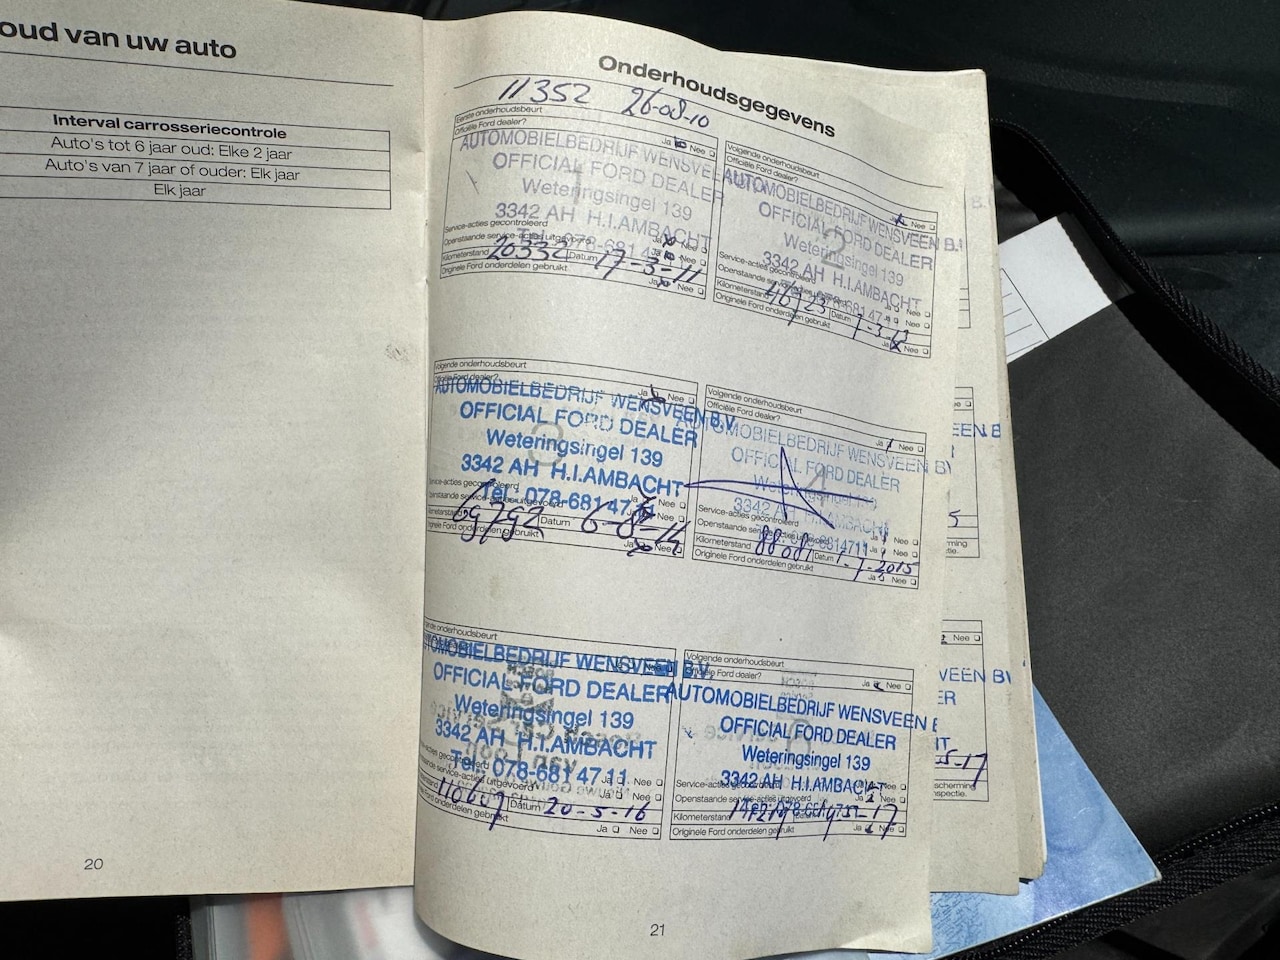 oud van uw auto
Interval carrosseriecontrole
Auto's tot 6 jaar oud: Elke 2 jaar
Auto's van 7 jaar of ouder: Elk jaar
Elk jaar
20
Onderhoudsgegevens
11352 26-08-10
Eerste onderhoudsbeurt
Officiële Ford dealer? Ja Nee
AUTOMOBIELBEDRIJF WENSVEEN
OFFICIAL FORD DEALER
Weteringsingel 139
3342 AH H.I.AMBACHT
Service-acties gecontroleerd Ja Nee
Openstaande service-acties uitgevoerd Ja Nee
Kilometerstand 20332 Datum 17-3-11
Originele Ford onderdelen gebruikt Ja Nee
Volgende onderhoudsbeurt
Officiële Ford dealer? Nee
AUTOMOBIELBEDRIJF WENSVEEN B.V
OFFICIAL FORD DEALER
2
Weteringsingel 139
3342 AH H.I.AMBACHT
Service-acties gecontroleerd Nee
Openstaande Nee
Kilometerstand Datum
Originele Ford onderdelen gebruikt Ja Nee
Volgende onderhoudsbeurt
Officiële Ford dealer? Ja Nee
AUTOMOBIELBEDRIJF WENSVEEN B.V.
OFFICIAL FORD DEALER
3
Weteringsingel 139
3342 AH H.I.AMBACHT
Tel. 078-681 47 11
Service-acties gecontroleerd Ja Nee
Openstaande service-acties uitgevoerd Nee
Kilometerstand 69792 Datum 6-8-14
Originele Ford onderdelen gebruikt Ja Nee
Volgende onderhoudsbeurt
Officiële Ford dealer? Ja Nee
AUTOMOBIELBEDRIJF WENSVEEN BV
OFFICIAL FORD DEALER
4
Weteringsingel 139
3342 AH H.I.AMBACHT
Tel. 078-6814711
Service-acties gecontroleerd Ja Nee
Openstaande Nee
Kilometerstand 88081 Datum 1-7-2015
Originele Ford onderdelen gebruikt Ja Nee
onderhoudsbeurt
AUTOMOBIELBEDRIJF WENSVEEN B.V.
OFFICIAL FORD DEALER
Weteringsingel 139
3342 AH H.I.AMBACHT
Tel. 078-681 47 11
Ja Nee
service-acties uitgevoerd Ja Nee
110607 Datum 20-5-16
Ford onderdelen gebruikt Ja Nee
Volgende onderhoudsbeurt
Officiële Ford dealer? Ja Nee
AUTOMOBIELBEDRIJF WENSVEEN B
OFFICIAL FORD DEALER
6
Weteringsingel 139
3342 AH H.I.AMBACHT
Service-acties gecontroleerd Nee
Openstaande service-acties uitgevoerd Nee
Kilometerstand
Originele Ford onderdelen gebruikt Ja Nee
21